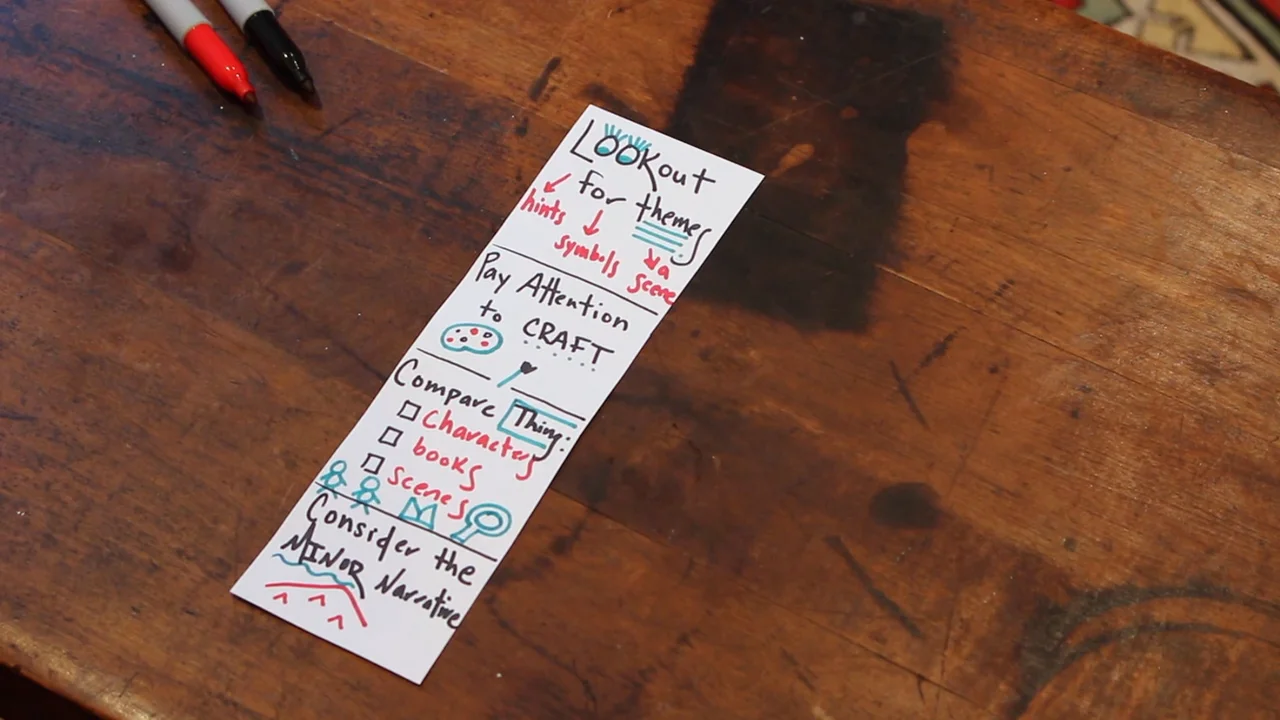 Lookout
for themes
hints
symbols
a
scene
Pay Attention
to CRAFT
Compare Things
Characters
books
scenes
Consider the
MINOR Narrative